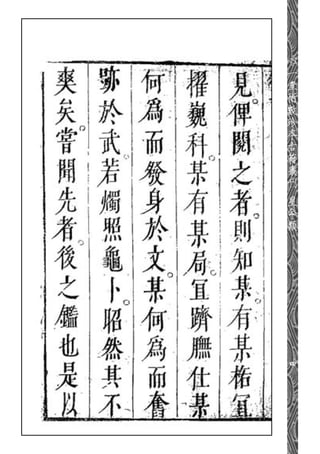 見俾閱之者則知某有某格宜
擢巍科某有某局宜躋膴仕某
何為而發身於文某何為而奮
跡於武若燭照龜卜昭然其不
爽矣嘗聞先者後之鑑也是以